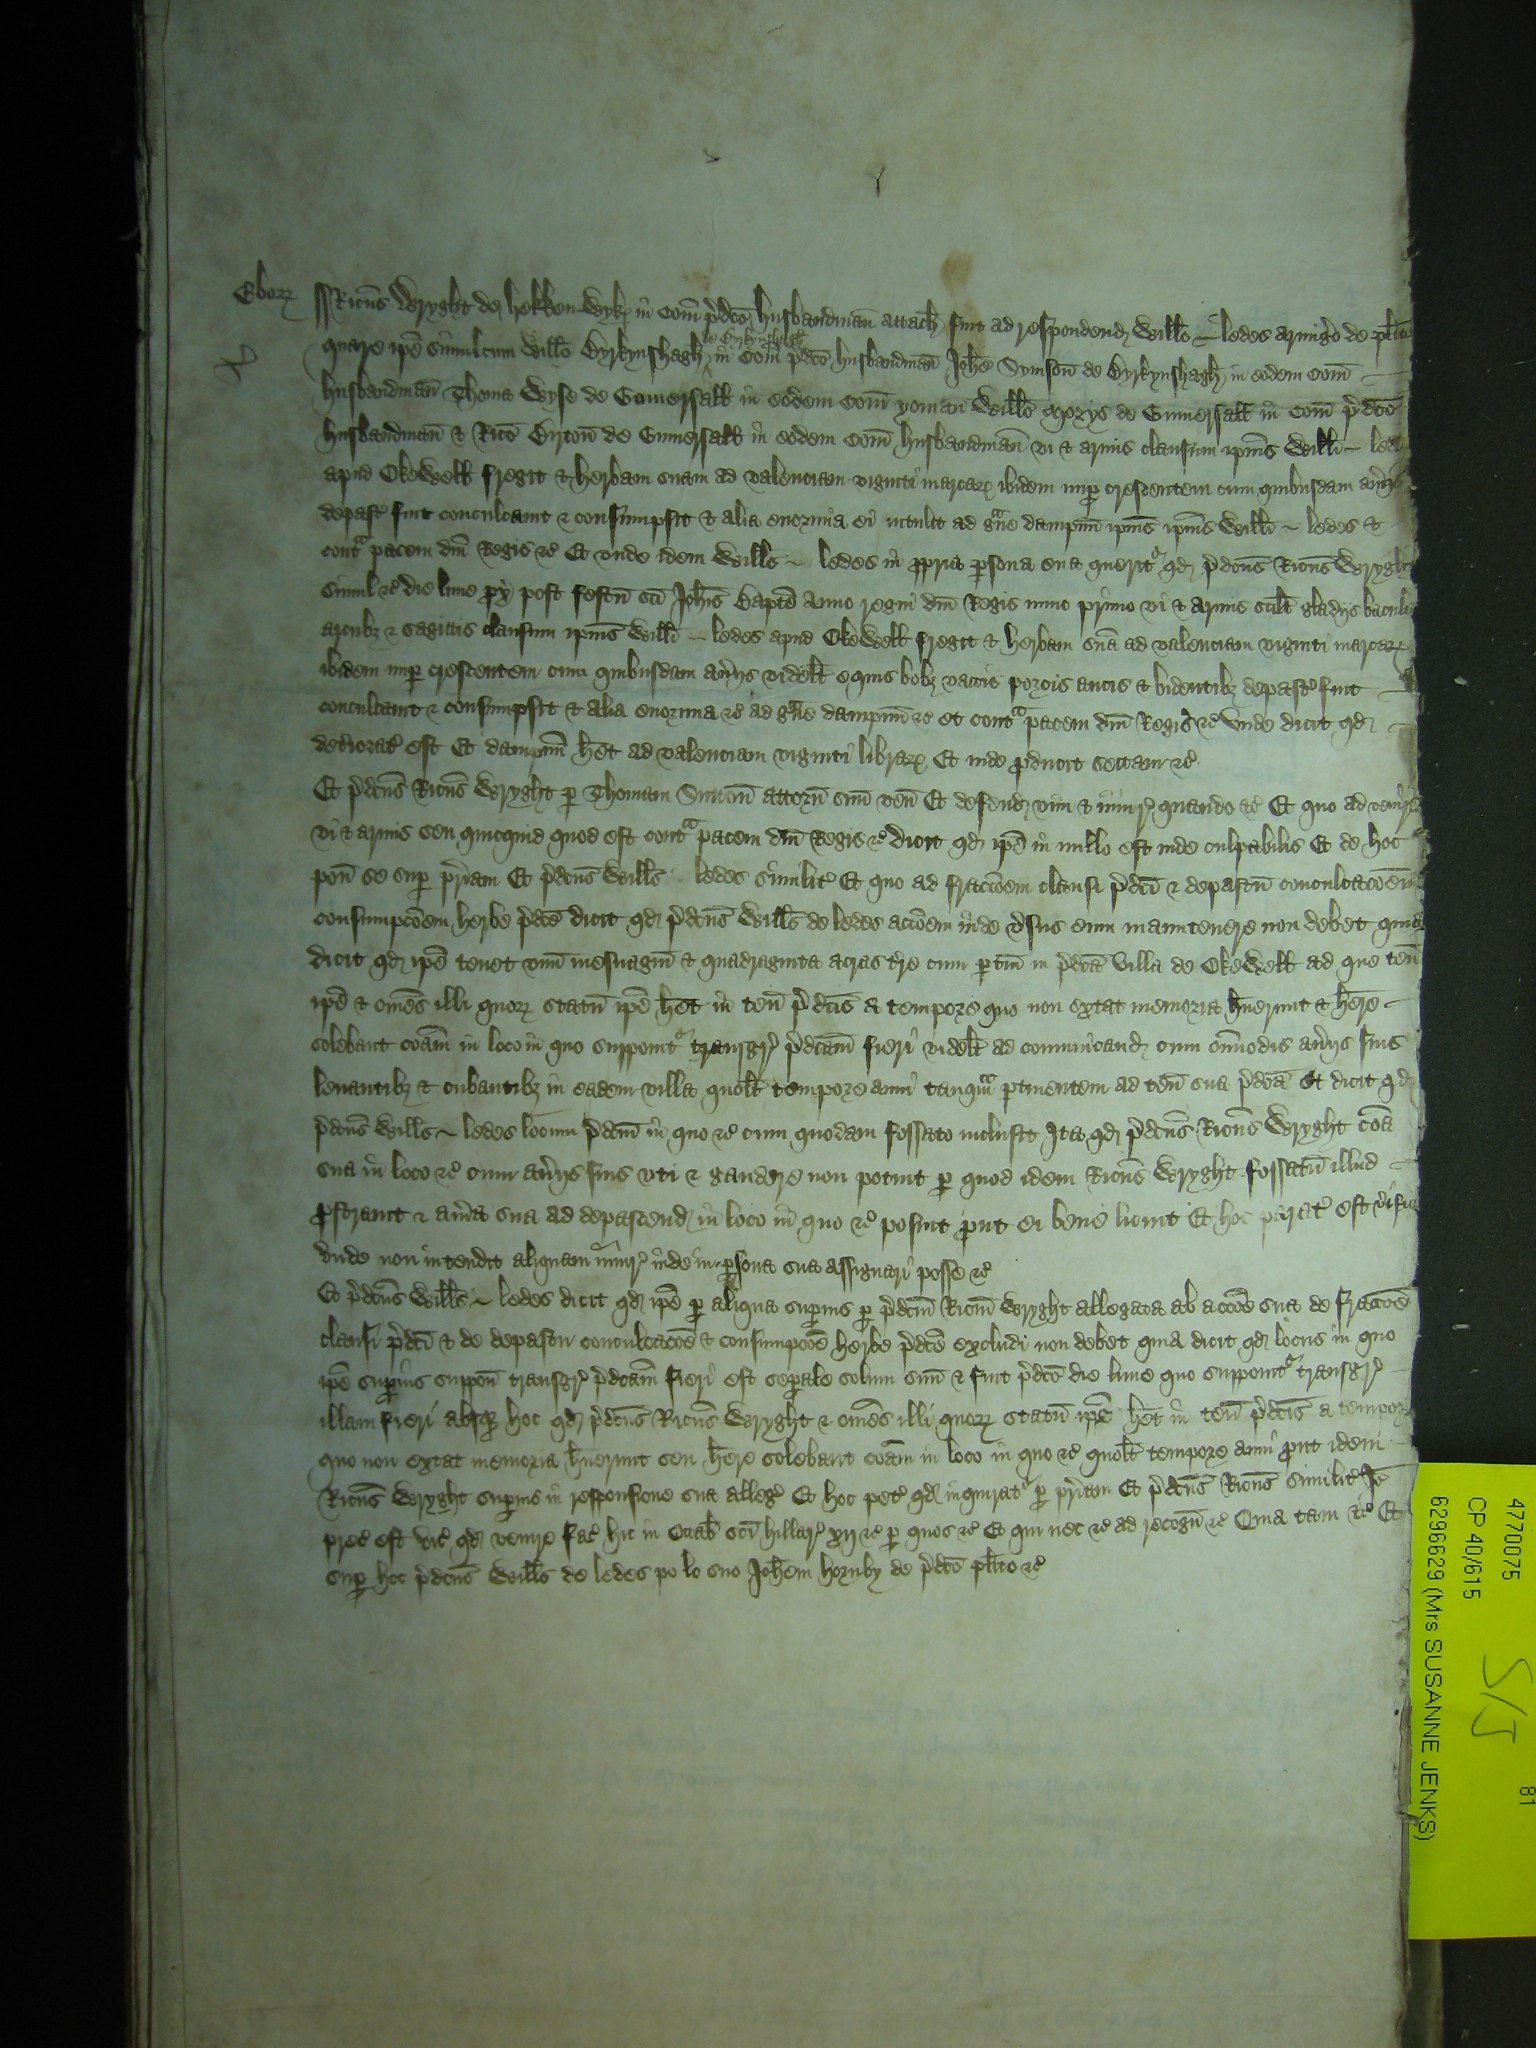 Eborꝝ Ricūs Wryght de hekkenwyke in Com̄ p̄dco husbandman attach̄ fuit ad respondend Willo ~ ledes armigo de plito
quare ip̄e simulcum Willo Byrkynshagh de Byrkynshagh in Com̄ p̄dco husbandman Johe Symson de Byrkynshagh in eodem Com̄
husbandman Thoma Wyse de Gumersall in eodem Com̄ yoman Willo Morys de Gumersall in Com̄ p̄dco
husbandman & Rico Byrton de Gumersall in eodem Com̄ husbandman vi & armis clausum ipius Willi ~ ledes
apud Okewell fregit & herbam suam ad valenciam viginti marcarꝝ ibidem nup crescentem cum quibusdam aviis
depast fuit conculcavit & consumpsit & alia enormia ei intulit ad gᵃve dampnū ipius ipius Willi ~ ledes &
contᵃ pacem dn̄i Regis &c Et unde idem Wills ~ ledes in propria psona sua querit qd p̄dcus Ricus Wryght
simul &c die lune prox post festū sci Johis Bapte anno regni dn̄i Regis nunc primo vi & armis scilt gladijs baculis
arcubz & sagittis clausum ipius Willi ~ ledes apud Okewell fregit & herbam suā ad valenciam viginti marcarꝝ
ibidem nup crescentem cum quibusdam aviis videlt equis bobz vaccis porcis aucis & bidentibz depast fuit
conculcavit & consumpsit & alia enormia &c ad gᵃve dampnū &c et contᵃ pacem dn̄i Regis &c Unde dicit qd
deteriorat est Et dampnū het ad valenciam viginti librarꝝ Et inde producit sectam &c
Et p̄dcus Ricus Wryght p Thomam attorn̄ suū ven̄ Et defend vim & iniur quando &c Et quo ad venire
vi & armis seu quicquid quod est contᵃ pacem dn̄i Regis &c dicit qd ip̄e in nullo est inde culpabilis Et de hoc
pon̄ se sup pr̄iam Et p̄dcus Wills ledes similit Et quo ad fraccoem clausi p̄dci & depastū conculcacoem
consumpcoem herbe p̄dce dicit qd p̄dcus Wills de ledes accoem inde vsus eum manutenere non debet quia
dicit qd ip̄e tenet unū mesuagiū & quadraginta acras tre cum ptin̄ in p̄dca villa de Okewell ad que ten̄
ip̄e & omes illi quorꝝ statū ip̄e het in ten̄ p̄dcis a tempore quo non extat memoria huerunt & here
solebant coam in loco in quo supponit transgr p̄dcam fieri videlt ad communicand cum omīodis aviis suis
levantibz & cubantibz in eadem villa quolt tempore anni tanqᵃm ptinentem ad ten̄ sua p̄dca Et dicit qd
p̄dcus Wills ~ ledes locum p̄dcm in quo &c cum quodam fossato inclusit Ita qd p̄dcus Ricus Wryght coa
sua in loco &c cum aviis suis uti & gaudere non potuit p quod idem Ricus Wryght fossatū illud
prostravit & avia sua ad depascend in loco in quo &c posuit prout ei bene licuit Et hoc parat est vific
unde non intendit aliquam iniur inde in psona sua assignari posse &c
Et p̄dcus Wills ~ ledes dicit qd ip̄e p aliqua supius p p̄dcm Ricm Wryght allegata ab accoe sua de fraccoe
clausi p̄dci & de depastu conculcacoe & consumpcoe herbe p̄dce excludi non debet quia dicit qd locus in quo
ip̄e supius suppon̄ transgr p̄dcam fieri est sepale solum suū & fuit p̄dco die lune quo supponit transgr
illam fieri absqz hoc qd p̄dcus Ricus Wryght & omes illi quorꝝ statū ip̄e het in ten̄ p̄dcis a tempore
quo non extat memoria huerunt seu here solebant coam in loco in quo &c quolt tempore anni prout idem
Ricus Wryght supius in responsione sua alleg Et hoc pet qd inquirat p pr̄iam Et p̄dcus Ricus similit Io
prec est vic qd venire fac hic in Octab sci Hillar xij &c p quos &c Et qui nec &c ad recogn̄ &c Quia tam &c Et
sup hoc p̄dcus Wills de ledes po lo suo Johem Hornby de p̄dco plito &c
4770075
CP 40/615
6296629 (Mrs SUSANNE JENKS)
S/J
81